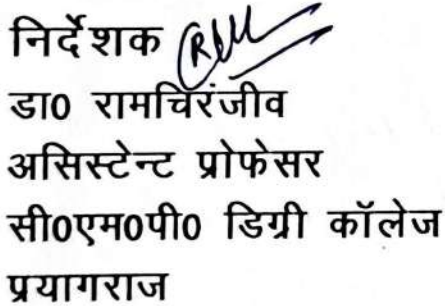 निर्देशक
डा0 रामचिरंजीव
असिस्टेन्ट प्रोफेसर
सी0एम0पी0 डिग्री कॉलेज
प्रयागराज